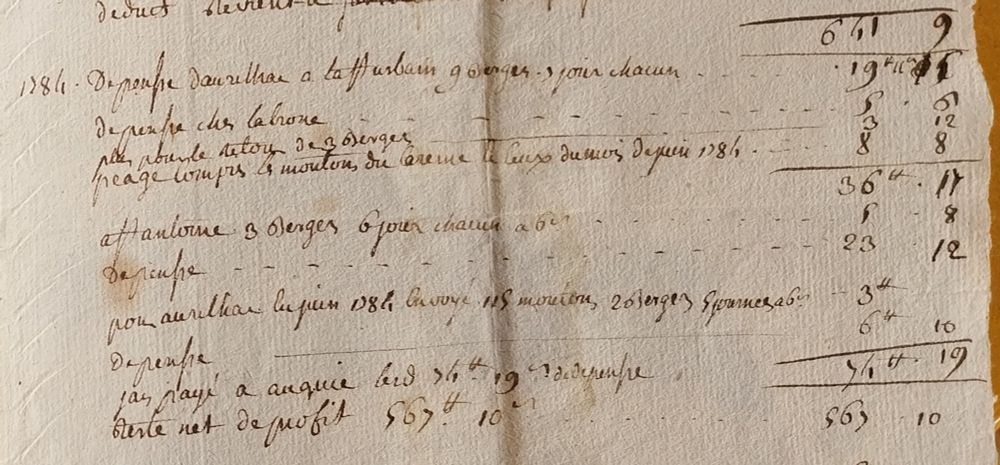 deduct
641 9
1784. Depensse daurilhac a la st urbain 9 Berges. 7 jour chacun 19 tt
depensse ches labrone 5 6
plus pour le retour de 3 Berges 3 12
peage compris le mouton du le du mois de juin 1784 8 8
36 tt 17
a st antoine 3 Berges 6 jour chacun a 6 s 5 8
Depensse 23 12
pour aurilhac en juin 1784 envoyé 115 mouton 2 Berges 5 journees a 6 s 3 tt
depensse 6 tt 10
jay payé a auquie led 74 tt 19 s de depensse 74 tt 19
Reste net de profit 567 tt 10 s 567 10